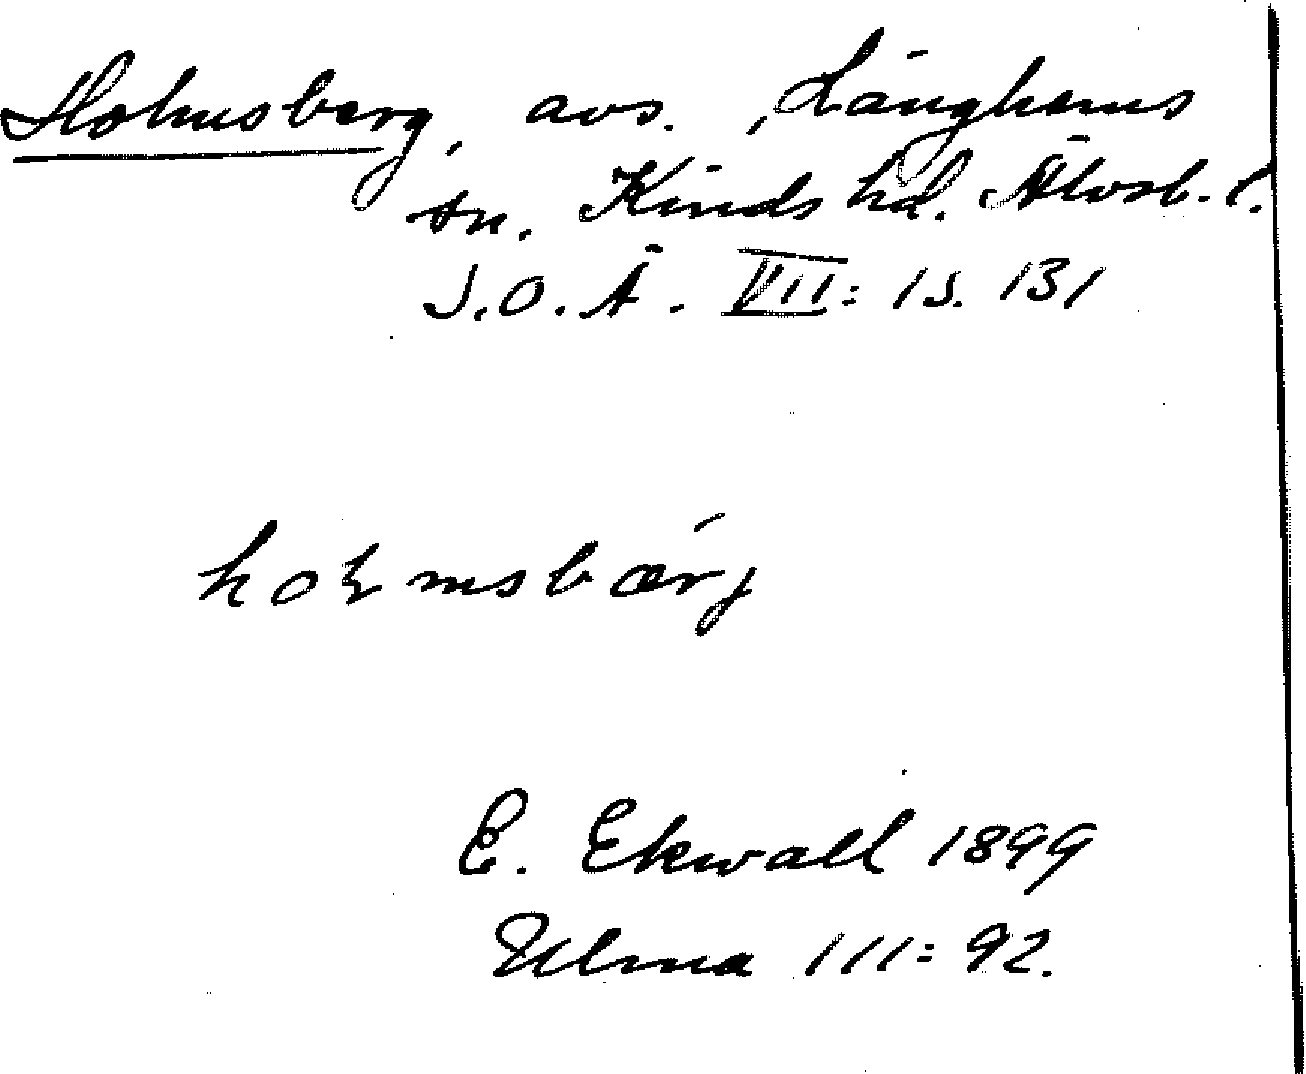 Holmsberg, avs., Länghems
sn. Kinds hd. Älvsb. l.
S.O.Ä. VII: 1 s. 131
holmsbærj
E. Ekwall 1899
Ulma 111: 92.